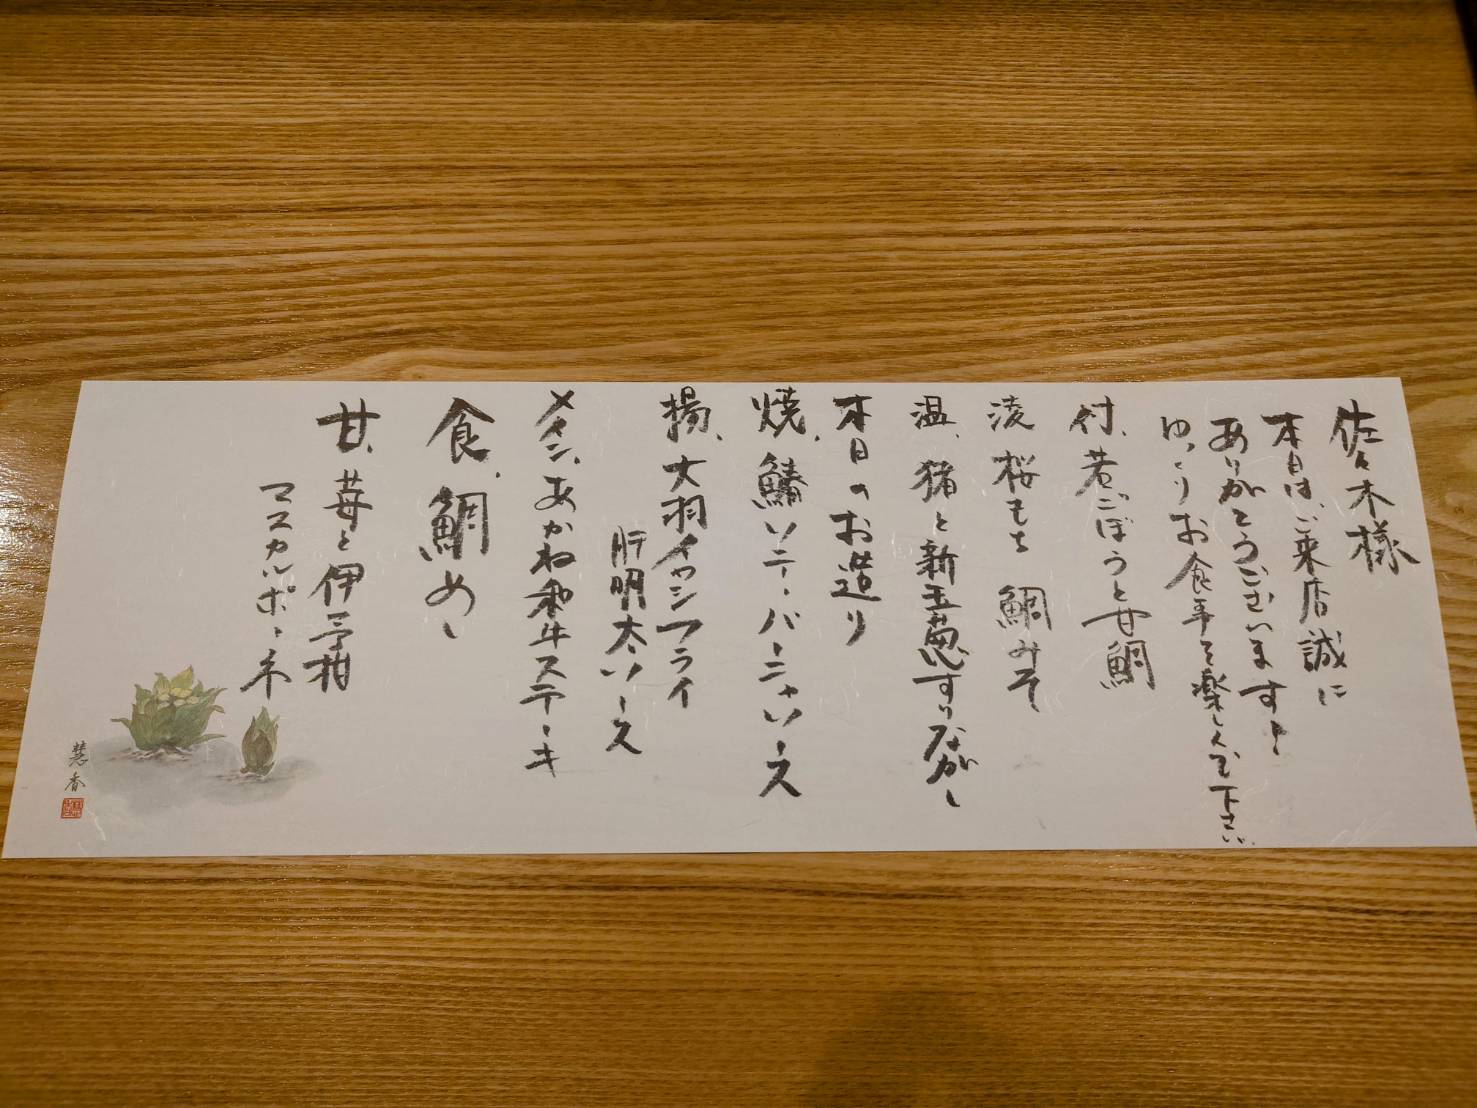 佐々木様
本日は、ご来店誠に
ありがとうございます！
ゆっくりお食事を楽しんで下さい。
付、若ごぼうと甘鯛
凌 桜もち 鯛みそ
温、猪と新玉葱すりながし
本日のお造り
焼、鰆ソテーバーニャソース
揚、大羽イワシフライ
肝明太ソース
メイン、あかね和牛ステーキ
食、鯛めし
甘、苺と伊予柑
マスカルポーネ
慧香